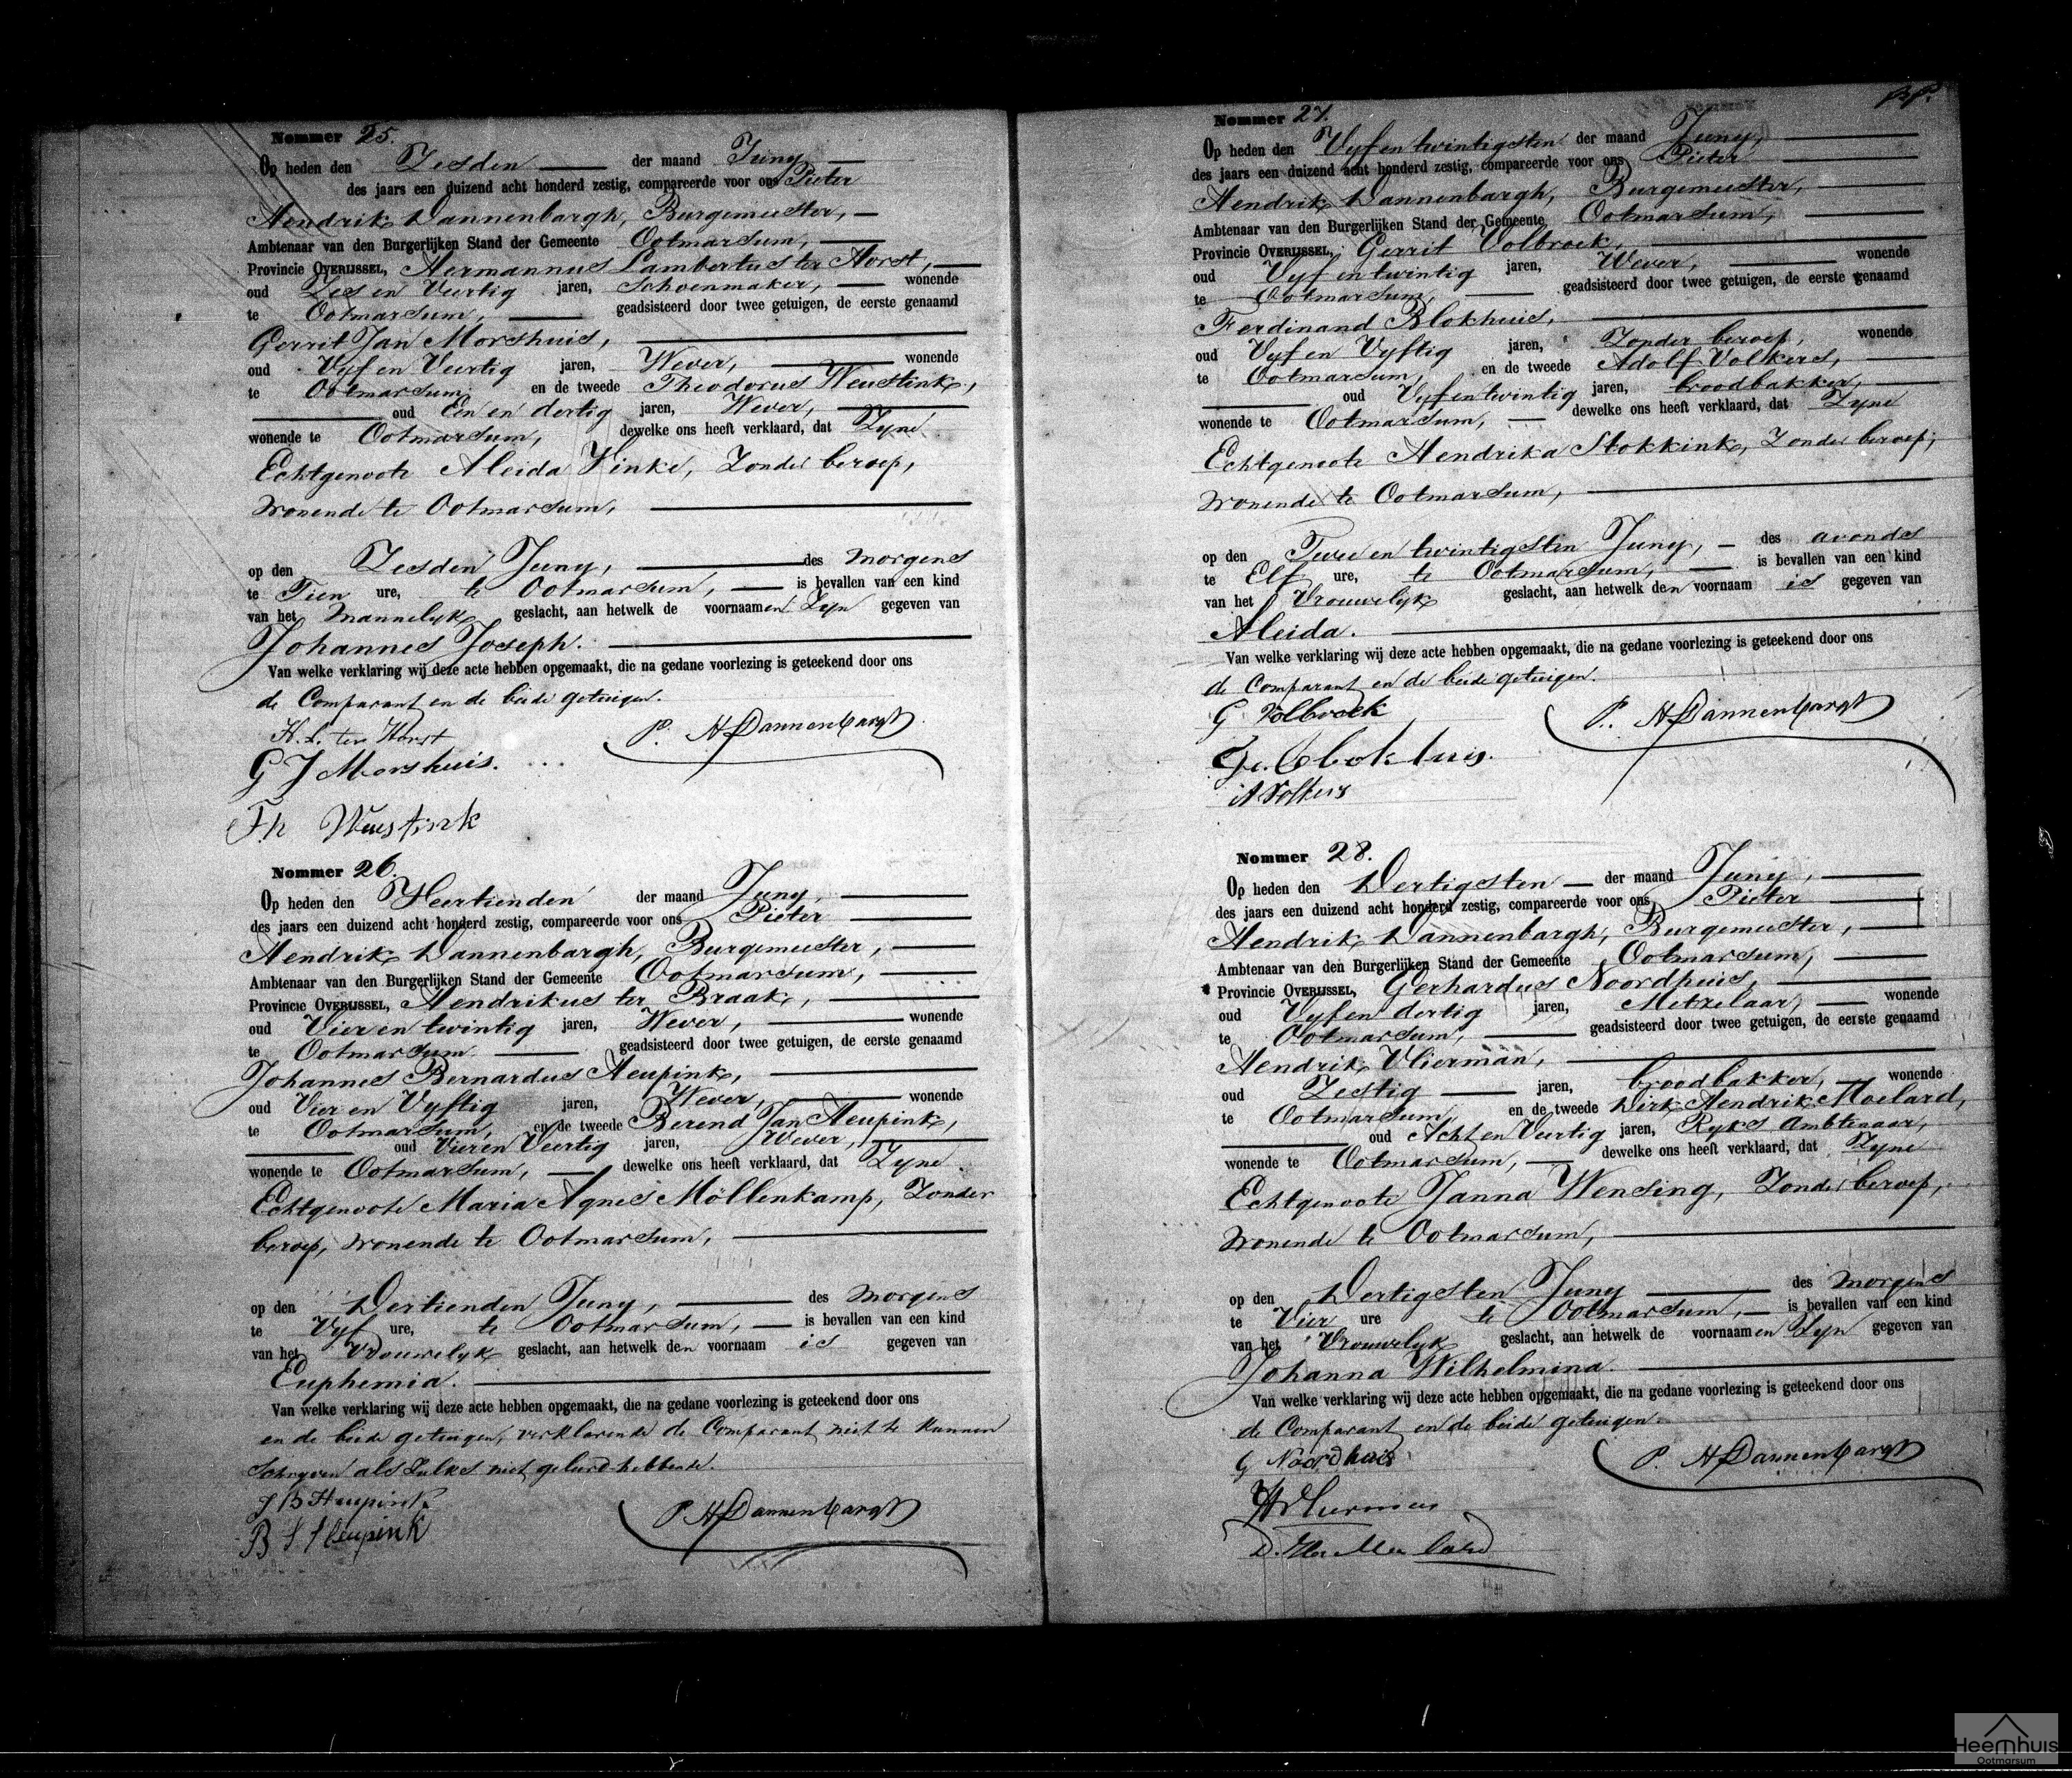 Nommer 25.
Op heden den Zesden der maand Juny
des jaars een duizend acht honderd zestig, compareerde voor ons Pieter
Hendrik Dannenbargh, Burgemeester,
Ambtenaar van den Burgerlijken Stand der Gemeente Ootmarsum,
Provincie OVERIJSSEL, Hermannus Lambertus ter Horst,
oud Zes en Veertig jaren, Schoenmaker, wonende
te Ootmarsum, geadsisteerd door twee getuigen, de eerste genaamd
Gerrit Jan Morshuis,
oud Vyf en Veertig jaren, Wever, wonende
te Ootmarsum, en de tweede Theodorus Weustink,
oud Een en dertig jaren, Wever,
wonende te Ootmarsum, dewelke ons heeft verklaard, dat Zyne
Echtgenoote Aleida Vinke, Zonder beroep,
Wonende te Ootmarsum,
op den Zesden Juny, des morgens
te Tien ure, te Ootmarsum, is bevallen van een kind
van het Mannelyk geslacht, aan hetwelk de voornaamen Zyn gegeven van
Johannes Joseph.
Van welke verklaring wij deze acte hebben opgemaakt, die na gedane voorlezing is geteekend door ons
de Comparant en de beide getuigen.
H. L. ter Horst P. H Dannenbargh
G J Morshuis.
Th Weustink
Nommer 26.
Op heden den Veertienden der maand Juny,
des jaars een duizend acht honderd zestig, compareerde voor ons Pieter
Hendrik Dannenbargh, Burgemeester,
Ambtenaar van den Burgerlijken Stand der Gemeente Ootmarsum,
Provincie OVERIJSSEL, Hendrikus ter Braak,
oud Vier en twintig jaren, Wever, wonende
te Ootmarsum. geadsisteerd door twee getuigen, de eerste genaamd
Johannes Bernardus Heupink,
oud Vier en Vyftig jaren, Wever, wonende
te Ootmarsum, en de tweede Berend Jan Heupink,
oud Vier en Veertig jaren, Wever,
wonende te Ootmarsum, dewelke ons heeft verklaard, dat Zyne
Echtgenoote Maria Agnes Möllenkamp, Zonder
beroep, wonende te Ootmarsum,
op den Dertienden Juny, des morgens
te Vyf ure, te Ootmarsum, is bevallen van een kind
van het Vrouwelyk geslacht, aan hetwelk den voornaam is gegeven van
Euphemia.
Van welke verklaring wij deze acte hebben opgemaakt, die na gedane voorlezing is geteekend door ons
en de beide getuigen, verklarende de Comparant niet te kunnen
Schryven als Zulks niet geleerd hebbende.
J B Heupink P. H Dannenbargh
B J Heupink
Nommer 27.
Op heden den Vyf en twintigsten der maand Juny,
des jaars een duizend acht honderd zestig, compareerde voor ons Pieter
Hendrik Dannenbargh, Burgemeester,
Ambtenaar van den Burgerlijken Stand der Gemeente Ootmarsum,
Provincie OVERIJSSEL, Gerrit Volbroek,
oud Vyf en twintig jaren, Wever, wonende
te Ootmarsum, geadsisteerd door twee getuigen, de eerste genaamd
Ferdinand Blokhuis,
oud Vyf en Vyftig jaren, Zonder beroep, wonende
te Ootmarsum, en de tweede Adolf Volkers,
oud Vyf en twintig jaren, broodbakker,
wonende te Ootmarsum, dewelke ons heeft verklaard, dat Zyne
Echtgenoote Hendrika Stokkink, Zonder beroep,
Wonende te Ootmarsum,
op den Twee en twintigsten Juny, des avonds
te Elf ure, te Ootmarsum, is bevallen van een kind
van het Vrouwelyk geslacht, aan hetwelk den voornaam is gegeven van
Aleida.
Van welke verklaring wij deze acte hebben opgemaakt, die na gedane voorlezing is geteekend door ons
de Comparant en de beide getuigen.
G Volbroek P. H Dannenbargh
Fe. Blokhuis.
A Volkers
Nommer 28.
Op heden den Dertigsten der maand Juny,
des jaars een duizend acht honderd zestig, compareerde voor ons Pieter
Hendrik Dannenbargh, Burgemeester,
Ambtenaar van den Burgerlijken Stand der Gemeente Ootmarsum,
Provincie OVERIJSSEL, Gerhardus Noordhuis,
oud Vyf en dertig jaren, Metzelaar, wonende
te Ootmarsum, geadsisteerd door twee getuigen, de eerste genaamd
Hendrik Vlierman,
oud Zestig jaren, broodbakker, wonende
te Ootmarsum, en de tweede Dirk Hendrik Moelard,
oud Acht en Veertig jaren, Ryks Ambtenaar,
wonende te Ootmarsum, dewelke ons heeft verklaard, dat Zyne
Echtgenoote Janna Wensing, Zonder beroep,
Wonende te Ootmarsum,
op den Dertigsten Juny des morgens
te Vier ure te Ootmarsum, is bevallen van een kind
van het Vrouwelyk geslacht, aan hetwelk de voornaamen Zyn gegeven van
Johanna Wilhelmina.
Van welke verklaring wij deze acte hebben opgemaakt, die na gedane voorlezing is geteekend door ons
de Comparant en de beide getuigen.
G Noordhuis P. H Dannenbargh
H Vlierman
Heemhuis
Ootmarsum